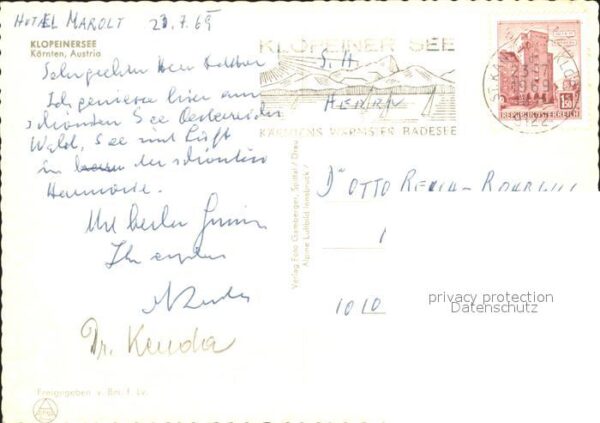 HOTEL MAROLT 23.7.69
KLOPEINERSEE
Kärnten, Austria
Sehr geehrter Herr
Ich geniesse hier am
schönsten See Oesterreichs
Wald, See und Luft
in der schönsten
Harmonie.
Mit besten
Ihr
Dr. Kenda
Freigegeben v. Bm. f. Lv.
Verlag Foto Gamberger, Spittal / Drau
Alpine Luftbild Innsbruck /
KLOPEINER SEE
KÄRNTENS WÄRMSTER BADESEE
ST. KANZIAN
23.-7.
1969
9122
1.50
REPUBLIK ÖSTERREICH
S. H.
HERRN
Dr OTTO
1010
privacy protection
Datenschutz